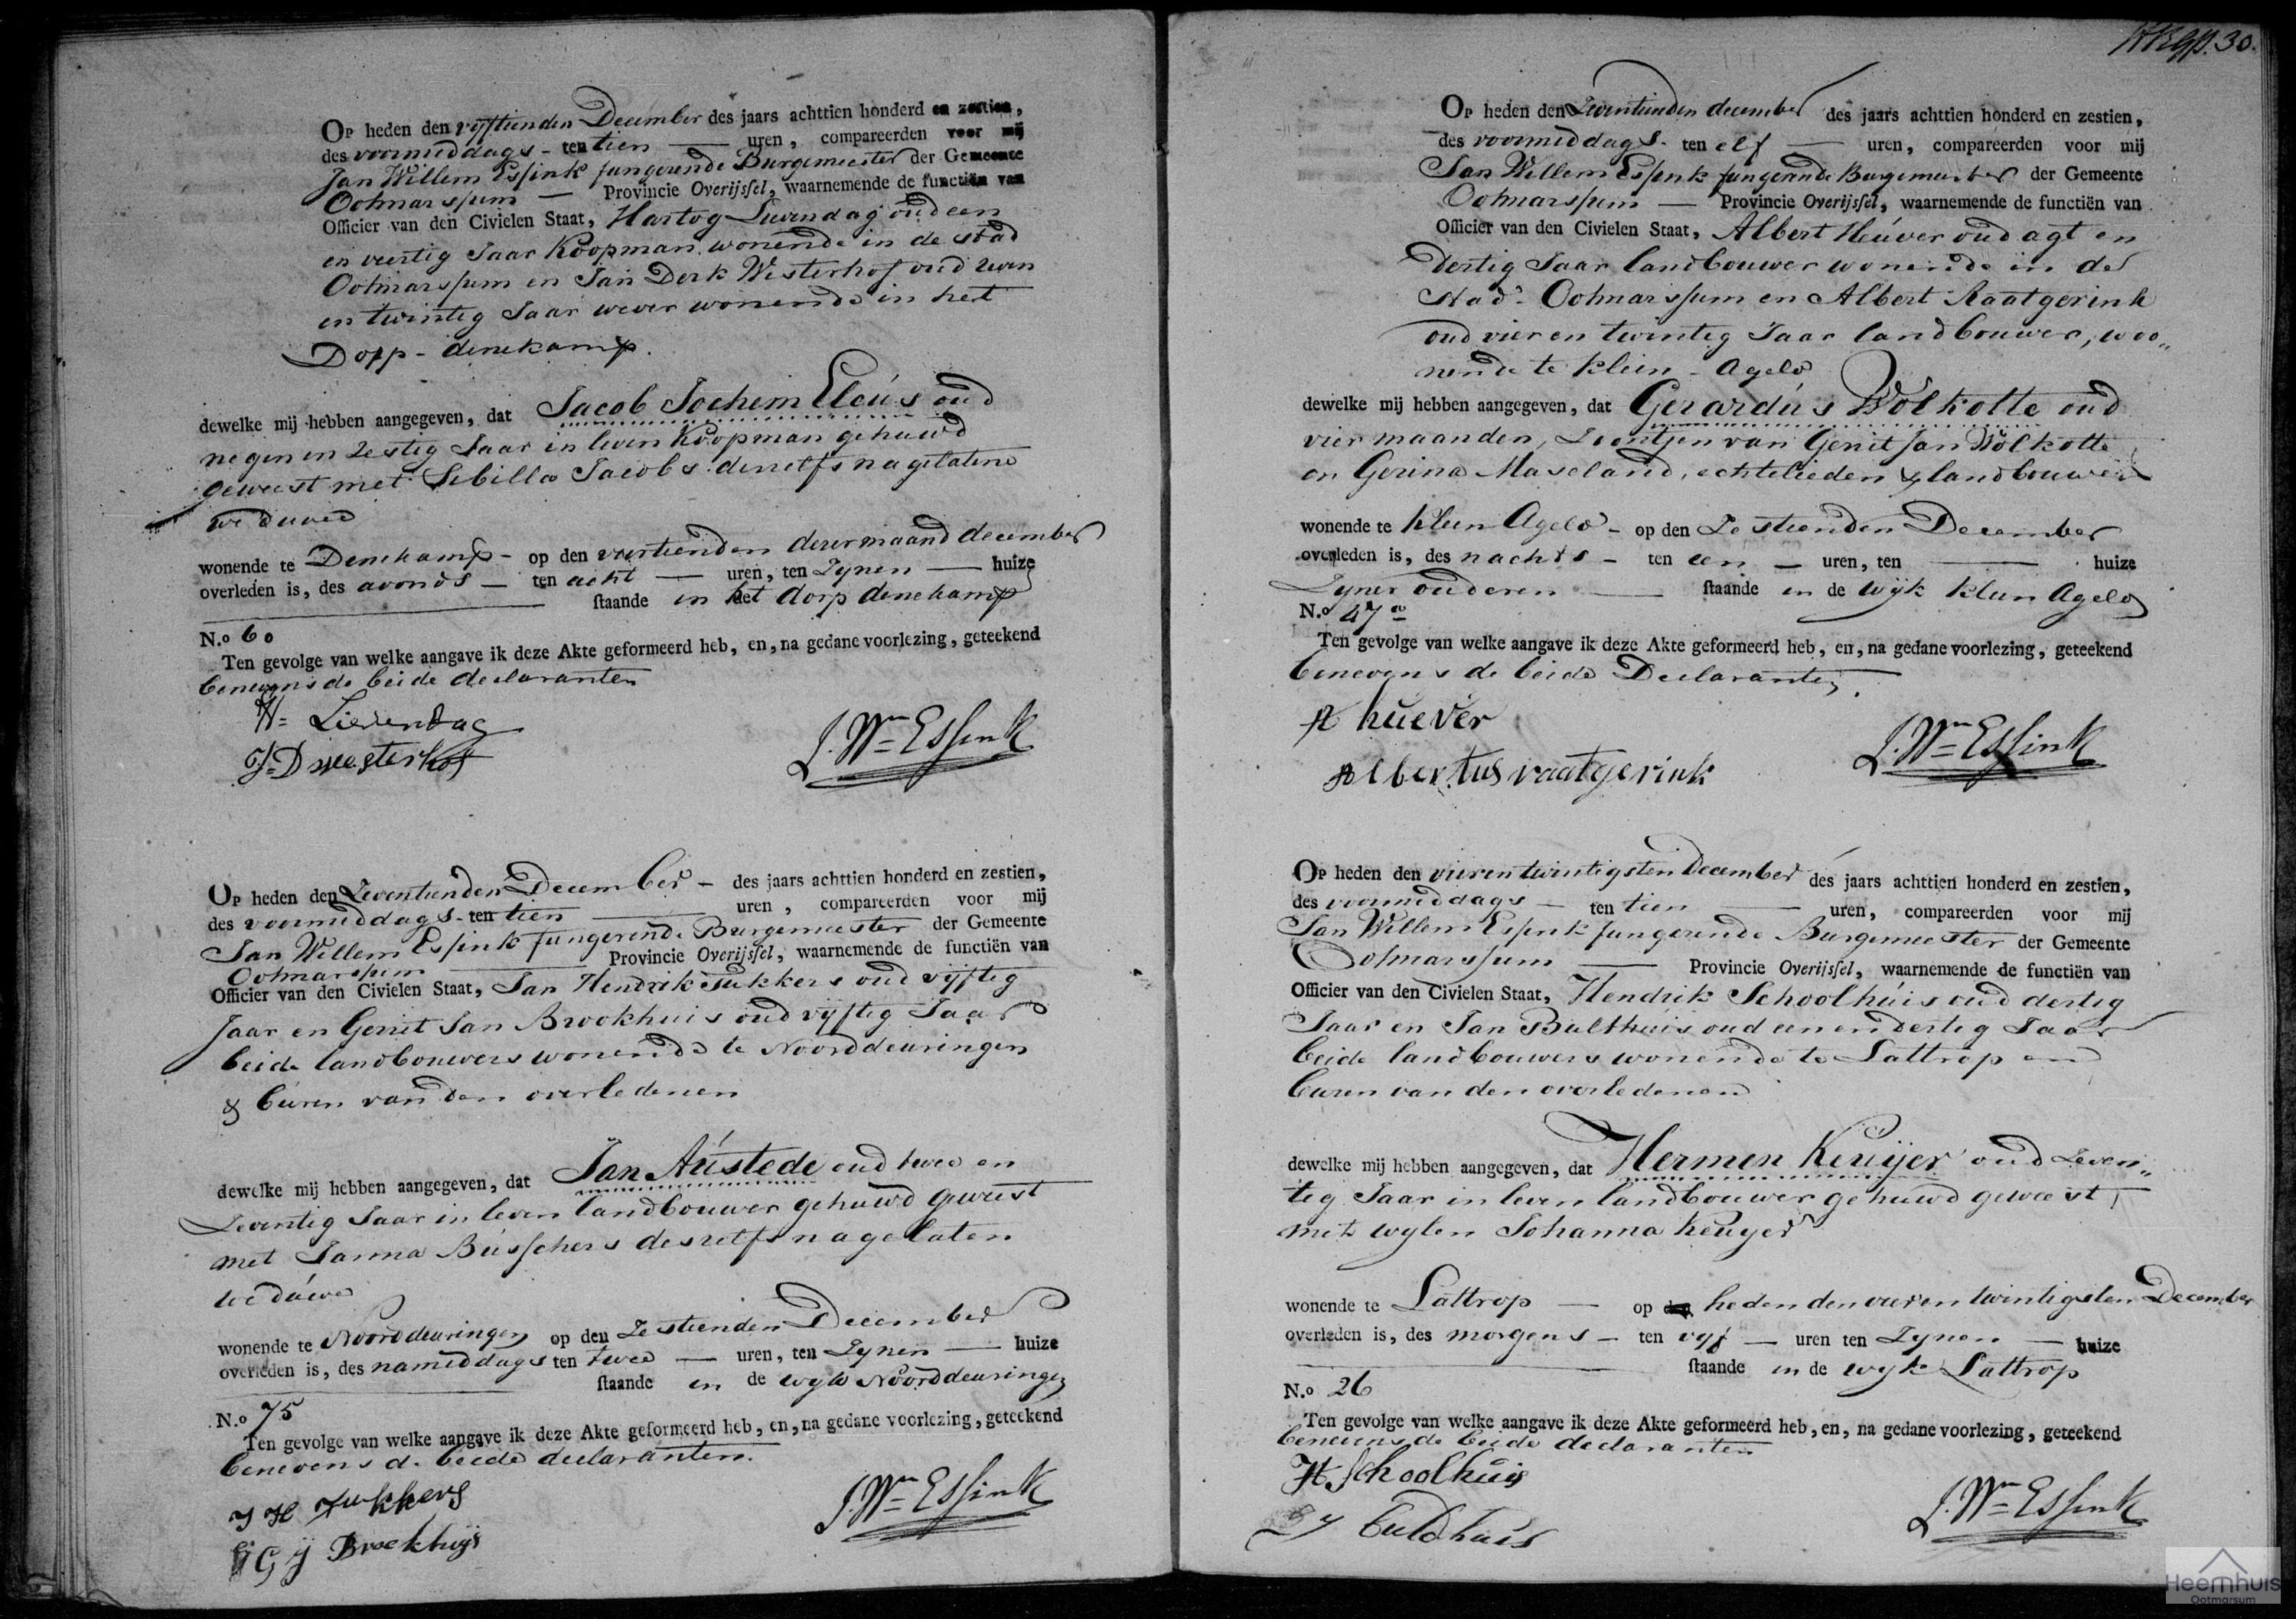 Op heden den vyftienden December des jaars achttien honderd en zestien,
des voormiddags - ten tien — uren, compareerden voor mij
Jan Willem Essink fungerende Burgemeester der Gemeente
Ootmarssum — Provincie Overijssel, waarnemende de functiën van
Officier van den Civielen Staat, Hartog Lievendag oud een
en veertig Jaar Koopman wonende in de stad
Ootmarssum en Jan Derk Westerhof oud zeven
en twintig Jaar wever wonende in het
Dorp - denekamp.
dewelke mij hebben aangegeven, dat Jacob Jochem Elcús oud
negen en zestig Jaar in leven Koopman gehuwd
geweest met Sibilla Jacobs. deszelfs nagelatene
weduwe
wonende te Denekamp - op den veertienden dezer maand december
overleden is, des avonds — ten acht — uren, ten Zynen — huize
staande in het dorp denekamp
N.o 60
Ten gevolge van welke aangave ik deze Akte geformeerd heb, en, na gedane voorlezing, geteekend
benevens de beide declaranten
H= Lievendag
J=D westerhof
J. Wm= Essink
Op heden den Zeventienden December - des jaars achttien honderd en zestien,
des voormiddags - ten tien — uren, compareerden voor mij
Jan Willem Essink fungerende Burgemeester der Gemeente
Ootmarssum — Provincie Overijssel, waarnemende de functiën van
Officier van den Civielen Staat, Jan Hendrik Tukkers oud vyftig
Jaar en Gerrit Jan Brookhuis oud vyftig Jaar
beide landbouwers wonende te Noorddeuringen
& búren van den overledenen
dewelke mij hebben aangegeven, dat Jan Aústede oud twee en
Zeventig Jaar in leven landbouwer gehuwd geweest
met Janna Bússchers deszelfs nagelaten
weduwe
wonende te Noorddeuringen op den Zestienden December
overleden is, des namiddags ten twee — uren, ten Zynen — huize
staande in de wyk Noorddeuringen
N.o 75
Ten gevolge van welke aangave ik deze Akte geformeerd heb, en, na gedane voorlezing, geteekend
benevens de beide declaranten.
J H Tukkers
G J Broekhuis
J. Wm= Essink
30.
Op heden den Zeventienden december des jaars achttien honderd en zestien,
des voormiddags. ten elf — uren, compareerden voor mij
Jan Willem Essink fungerende Burgemeester der Gemeente
Ootmarssum — Provincie Overijssel, waarnemende de functiën van
Officier van den Civielen Staat, Albert Heúver oud agt en
dertig Jaar landbouwer wonende in de
stad Ootmarssum en Albert Raatgerink
oud vier en twintig Jaar landbouwer, woo„
nende te klein - Agelo
dewelke mij hebben aangegeven, dat Gerardús Wolkotte oud
vier maanden, Zoontjen van Gerrit Jan Wolkotte
en Gerina Maseland, echtelieden & landbouwers
wonende te Klein Agelo - op den Zestienden December
overleden is, des nachts - ten een — uren, ten — huize
Zyner ouderen — staande in de wijk klein Agelo
N.o 47a
Ten gevolge van welke aangave ik deze Akte geformeerd heb, en, na gedane voorlezing, geteekend
benevens de beide Declaranten.
A hüever
Albertus raatgerink
J. Wm= Essink
Op heden den vieren twintigsten December des jaars achttien honderd en zestien,
des voormiddags — ten tien — uren, compareerden voor mij
Jan Willem Essink fungerende Burgemeester der Gemeente
Ootmarssum — Provincie Overijssel, waarnemende de functiën van
Officier van den Civielen Staat, Hendrik Schoolhúis oud dertig
Jaar en Jan Bulthuis oud een en dertig Jaar
beide landbouwers wonende te Lattrop en
buren van den overledenen
dewelke mij hebben aangegeven, dat Hermen Keuijer oud Zeven„
tig Jaar in leven landbouwer gehuwd geweest
met wylen Johanna Keuyer
wonende te Lattrop — op heden den vieren twintigsten December
overleden is, des morgens — ten vyf — uren ten Zynen — huize
staande in de wyk Lattrop
N.o 26
Ten gevolge van welke aangave ik deze Akte geformeerd heb, en, na gedane voorlezing, geteekend
benevens de beide declaranten
H. Schoolhúis
J. Wm= Essink
Heemhuis
Ootmarsum